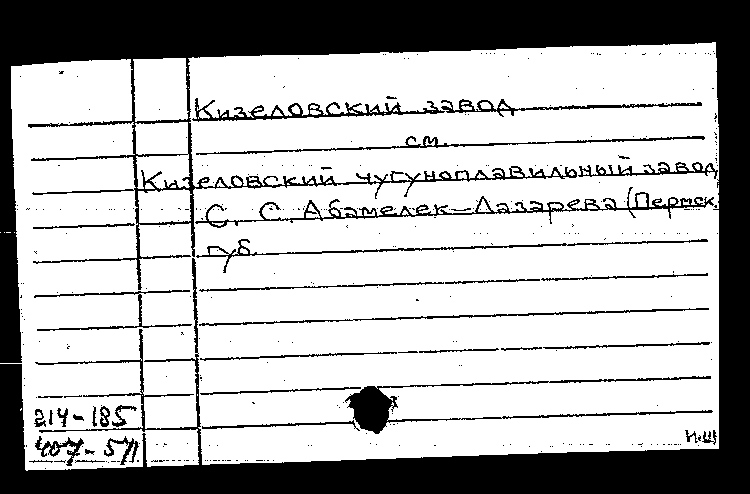 Кизеловский завод
см.
Кизеловский чугуноплавильный завод
С. С. Абамелек-Лазарева (Пермск.
губ.
214-185
407-571
Н.Ш